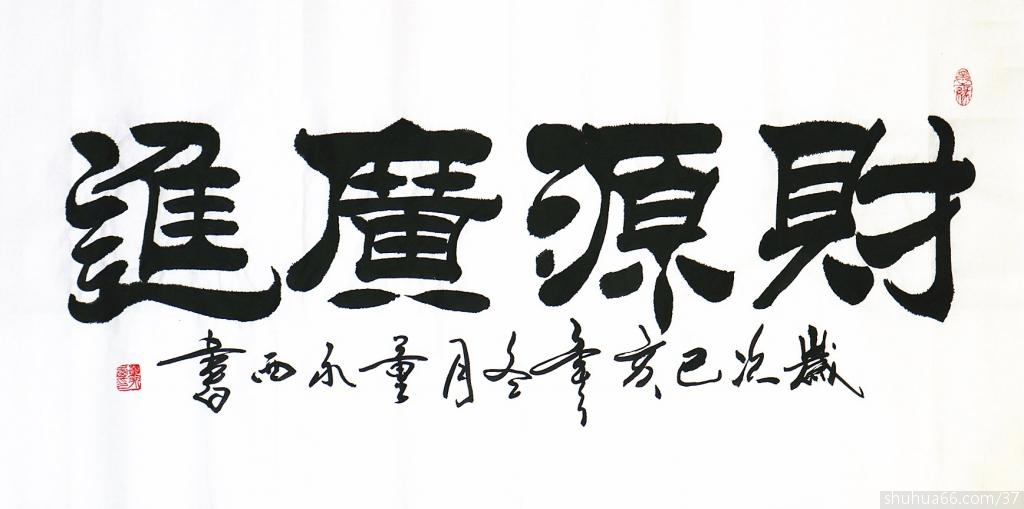 財源廣進
歲次己亥年冬月董永西書
shuhua66.com/37